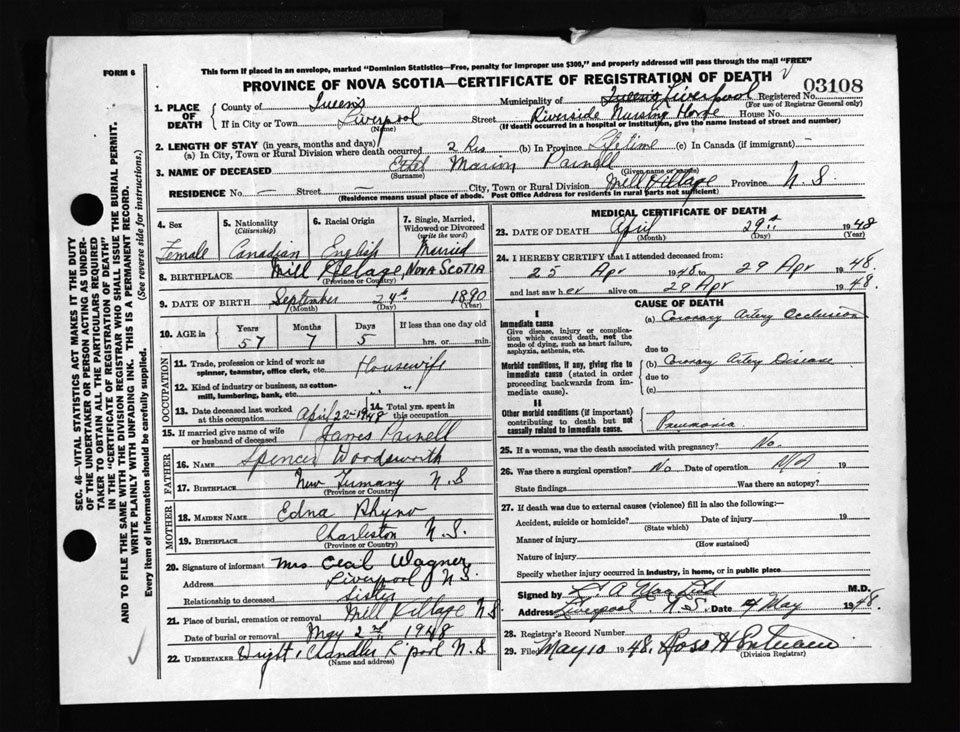 FORM 6
This form if placed in an envelope, marked "Dominion Statistics—Free, penalty for improper use $300," and properly addressed will pass through the mail "FREE"
PROVINCE OF NOVA SCOTIA—CERTIFICATE OF REGISTRATION OF DEATH
03108
1. PLACE OF DEATH
County of Queens Municipality of Queens Liverpool Registered No.
(For use of Registrar General only)
If in City or Town Liverpool Street Riverside Nursing Home House No.
(Name) (If death occurred in a hospital or institution, give the name instead of street and number)
2. LENGTH OF STAY (in years, months and days)
(a) In City, Town or Rural Division where death occurred 2 (b) In Province Lifetime (c) In Canada (if immigrant) —
3. NAME OF DECEASED Ethel Marion Parnell
(Surname) (Given name or names)
RESIDENCE No. — Street — City, Town or Rural Division Mill Village Province N.S.
(Residence means usual place of abode. Post Office Address for residents in rural parts not sufficient)
4. Sex Female
5. Nationality (Citizenship) Canadian
6. Racial Origin English
7. Single, Married, Widowed or Divorced (write the word) Married
8. BIRTHPLACE Mill Village, NOVA SCOTIA
(Province or Country)
9. DATE OF BIRTH September 24th 1890
(Month) (Day) (Year)
10. AGE in Years 57 Months 7 Days 5 If less than one day old hrs. or min.
OCCUPATION
11. Trade, profession or kind of work as spinner, teamster, office clerk, etc. Housewife
12. Kind of industry or business, as cotton-mill, lumbering, bank, etc. " "
13. Date deceased last worked at this occupation April 22-1948
14. Total yrs. spent in this occupation
15. If married give name of wife or husband of deceased James Parnell
FATHER
16. NAME Spencer Woodsworth
17. BIRTHPLACE New Germany N.S
(Province or Country)
MOTHER
18. MAIDEN NAME Edna Rhyno
19. BIRTHPLACE Charleston N.S.
(Province or Country)
20. Signature of informant Mrs Cecil Wagner
Address Liverpool N.S.
Relationship to deceased Sister
21. Place of burial, cremation or removal Mill Village N.S
Date of burial or removal May 2nd 1948
22. UNDERTAKER Wright & Chandler L'pool N.S
(Name and address)
MEDICAL CERTIFICATE OF DEATH
23. DATE OF DEATH April 29th 1948
(Month) (Day) (Year)
24. I HEREBY CERTIFY that I attended deceased from:
25 Apr 1948 to 29 Apr 1948.
and last saw her alive on 29 Apr 1948.
CAUSE OF DEATH
I
Immediate cause
Give disease, injury or complication which caused death, not the mode of dying, such as heart failure, asphyxia, asthenia, etc.
(a) Coronary Artery Occlusion
due to
Morbid conditions, if any, giving rise to immediate cause (stated in order proceeding backwards from immediate cause).
(b) Coronary Artery Disease
due to
(c)
II
Other morbid conditions (if important) contributing to death but not causally related to immediate cause.
Pneumonia
25. If a woman, was the death associated with pregnancy? No.
26. Was there a surgical operation? No Date of operation N/A 19
State findings Was there an autopsy?
27. If death was due to external causes (violence) fill in also the following:
Accident, suicide or homicide? Date of injury 19
(State which)
Manner of injury
(How sustained)
Nature of injury
Specify whether injury occurred in industry, in home, or in public place
Signed by M.D.
Address Liverpool N.S. Date 4 May 1948.
28. Registrar's Record Number
29. Filed May 10 1948.
(Division Registrar)
SEC. 46—VITAL STATISTICS ACT MAKES IT THE DUTY
OF THE UNDERTAKER OR PERSON ACTING AS UNDER-
TAKER TO OBTAIN ALL THE PARTICULARS REQUIRED
IN THE "CERTIFICATE OF REGISTRATION OF DEATH"
AND TO FILE THE SAME WITH THE DIVISION REGISTRAR WHO SHALL ISSUE THE BURIAL PERMIT.
WRITE PLAINLY WITH UNFADING INK. THIS IS A PERMANENT RECORD.
Every item of information should be carefully supplied. (See reverse side for instructions.)